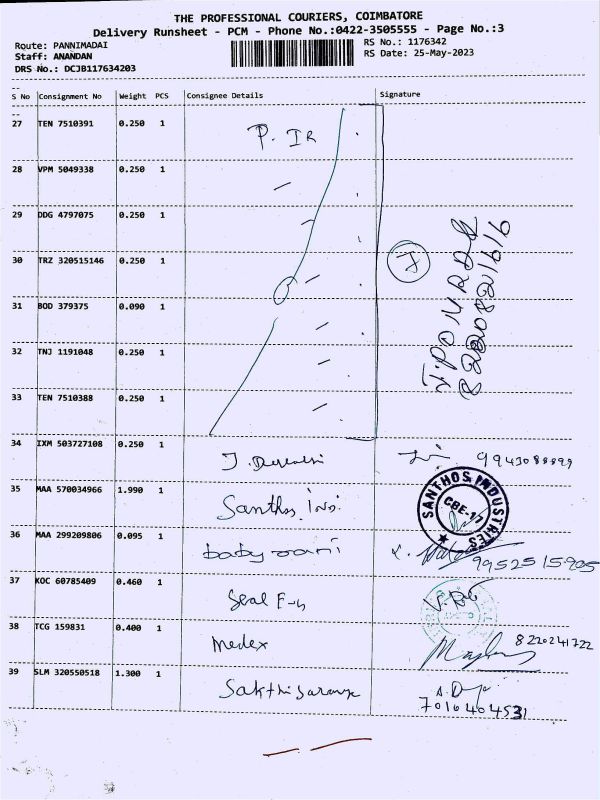 THE PROFESSIONAL COURIERS, COIMBATORE
Delivery Runsheet - PCM - Phone No.:0422-3505555 - Page No.:3
Route: PANNIMADAI RS No.: 1176342
Staff: ANANDAN RS Date: 25-May-2023
DRS No.: DCJB117634203
S No Consignment No Weight PCS Consignee Details Signature
27 TEN 7510391 0.250 1 P. IR
28 VPM 5049338 0.250 1
29 DDG 4797075 0.250 1
30 TRZ 320515146 0.250 1
31 BOD 379375 0.090 1
32 TNJ 1191048 0.250 1
33 TEN 7510388 0.250 1
34 IXM 503727108 0.250 1 J.
35 MAA 570034966 1.990 1 Santhos Ins.
SANTHOS INDUSTRIES
CBE-17
36 MAA 299209806 0.095 1 baby rani 9952515905
37 KOC 60785409 0.460 1 Seal
38 TCG 159831 0.400 1 medex 8220241722
39 SLM 320550518 1.300 1
7010404531